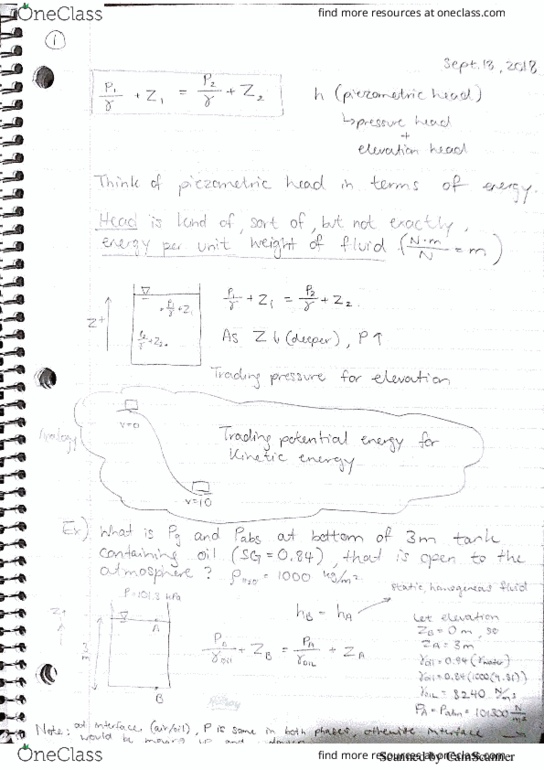 OneClass
find more resources at oneclass.com
1
Sept. 13, 2018
P₁/γ + Z₁ = P₂/γ + Z₂
h (piezometric head)
↳ pressure head
+
elevation head
Think of piezometric head in terms of energy.
Head is kind of, sort of, but not exactly,
energy per unit weight of fluid (N·m/N = m)
P₁/γ + Z₁ = P₂/γ + Z₂
P₁/γ + Z₁
Z+
P₂/γ + Z₂
As Z ↓ (deeper), P ↑
Trading pressure for elevation
Analogy
V=0
Trading potential energy for
Kinetic energy
V=10
Ex) What is Pg and Pabs at bottom of 3m tank
containing oil (SG = 0.84), that is open to the
atmosphere? ρH₂O = 1000 kg/m³
P=101.3 kPa
static, homogeneous fluid
hB = hA
Z+
A
3m
B
PB/γoil + ZB = PA/γoil + ZA
Let elevation
ZB = 0m, so
ZA = 3m
γoil = 0.84(γwater)
γoil = 0.84(1000)(9.81)
γoil = 8240 N/m³
PA = Patm = 101300 N/m²
Note: at interface (air/oil), P is same in both phases, otherwise interface
would be moving up and down
OneClass
find more resources at oneclass.com
Scanned by CamScanner